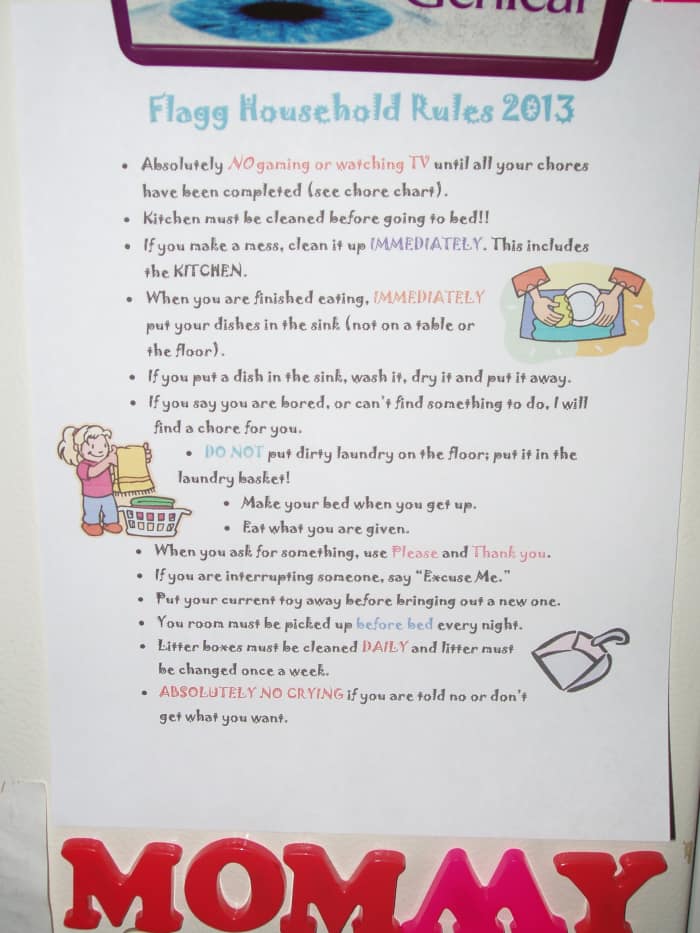 Genical
Flagg Household Rules 2013
• Absolutely NO gaming or watching TV until all your chores
have been completed (see chore chart).
• Kitchen must be cleaned before going to bed!!
• If you make a mess, clean it up IMMEDIATELY. This includes
the KITCHEN.
• When you are finished eating, IMMEDIATELY
put your dishes in the sink (not on a table or
the floor).
• If you put a dish in the sink, wash it, dry it and put it away.
• If you say you are bored, or can't find something to do, I will
find a chore for you.
• DO NOT put dirty laundry on the floor; put it in the
laundry basket!
• Make your bed when you get up.
• Eat what you are given.
• When you ask for something, use Please and Thank you.
• If you are interrupting someone, say "Excuse Me."
• Put your current toy away before bringing out a new one.
• You room must be picked up before bed every night.
• Litter boxes must be cleaned DAILY and litter must
be changed once a week.
• ABSOLUTELY NO CRYING if you are told no or don't
get what you want.
MOMMY